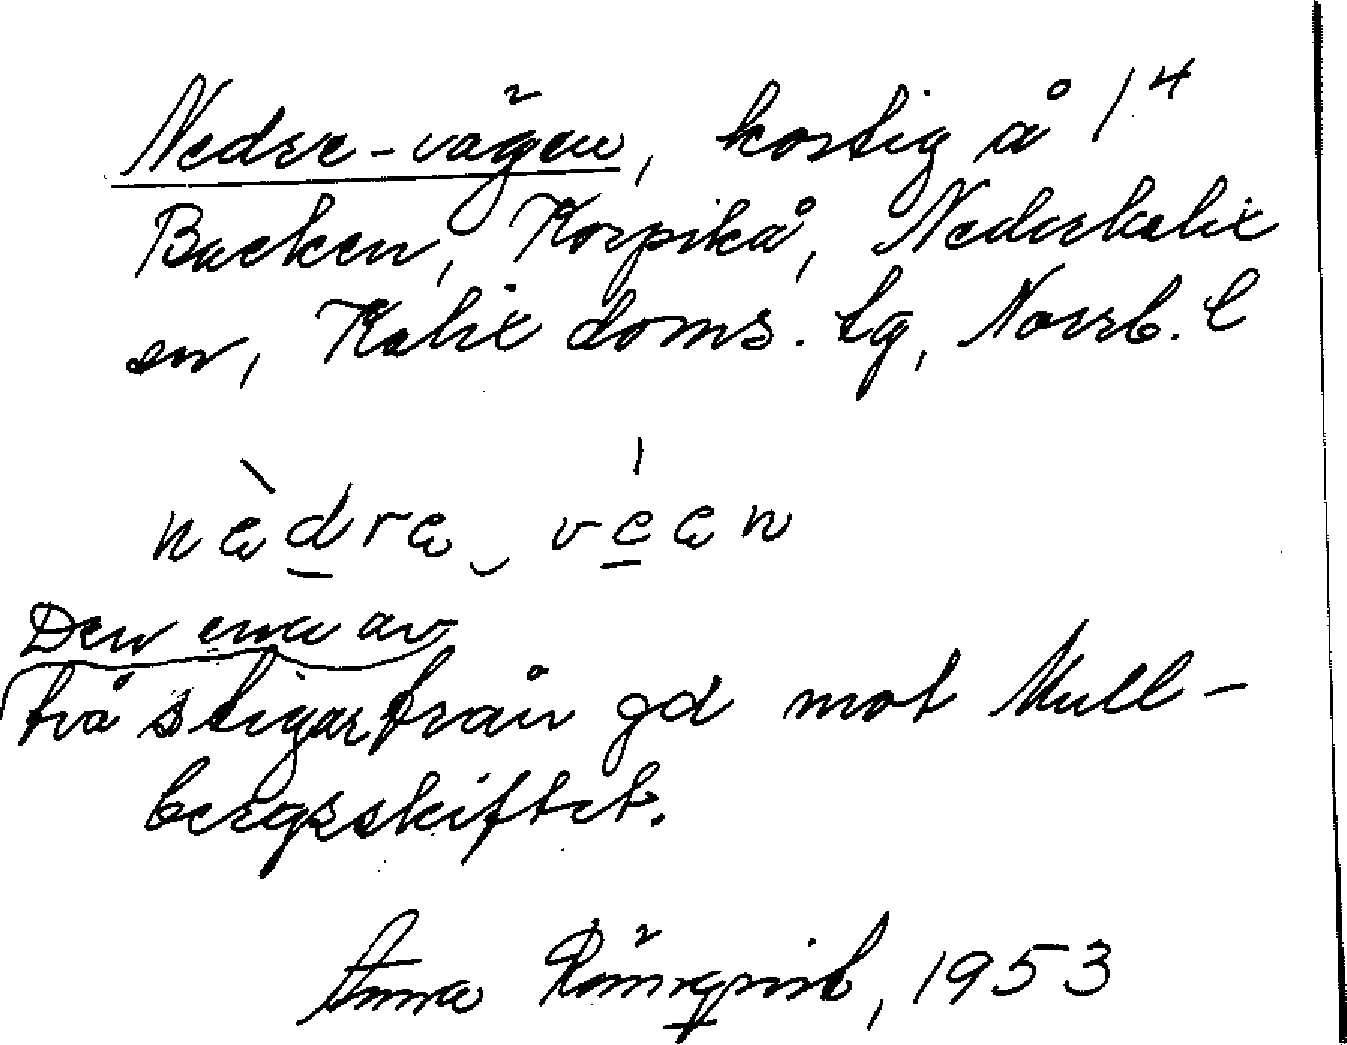 Nedre-vägen, kostig å 1⁴
Backen, Korpikå, Nederkalix
sn, Kalix doms. lg, Norrb. l
nèdrę véęn
Den ena av
två stigar från gd mot Mull-
bergsskiftet.
Anna Rönnqvist, 1953